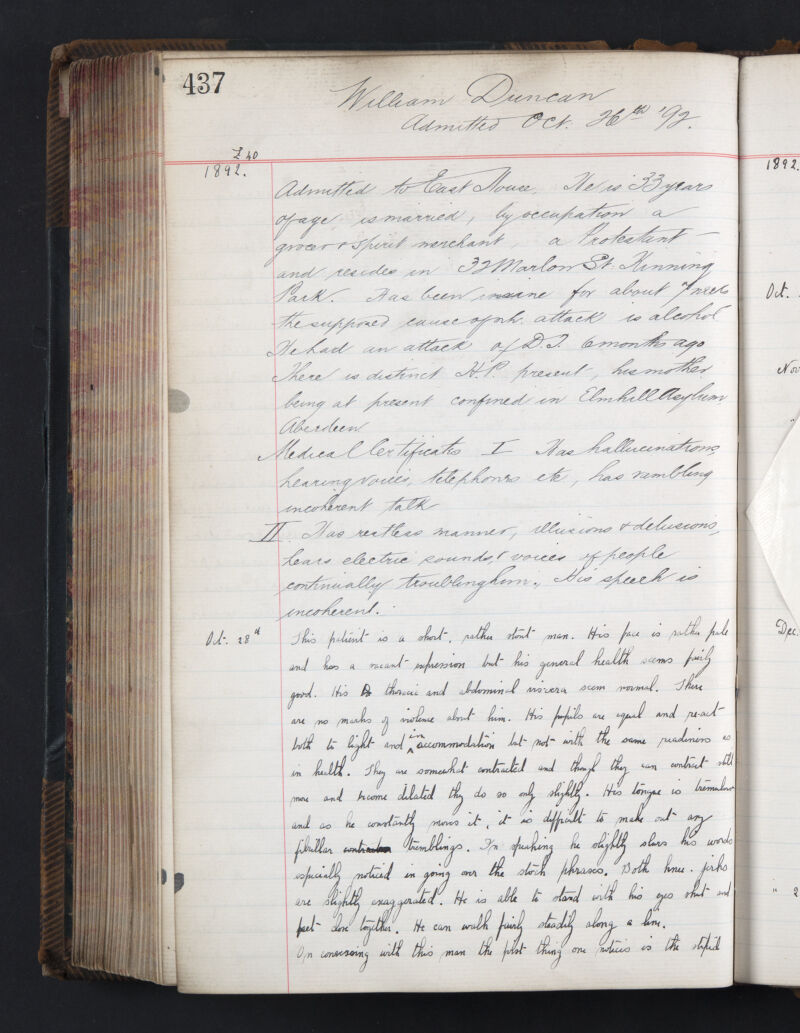 437
William Duncan
Admitted Oct. 26th '92.
£40
1892.
Admitted to East House. He is 33 years
of age, is married, by occupation a
grocer & spirit merchant, a Protestant
and resides in 32 Marlow St. Kinning
Park. Has been insane for about 7 weeks
the supposed cause of wh. attack is alcohol
He had an attack of D.T. 6 months ago
There is distinct H.P. present, his mother
being at present confined in Elmhill Asylum
Aberdeen
Medical Certificates I Has hallucinations,
hearing voices, telephones etc, has rambling
incoherent talk
II. Has restless manner, illusions & delusions,
hears electric sounds, & voices of people
continually troubling him. His speech is
incoherent.
Oct. 28th
This patient is a short, rather stout man. His face is rather pale
and has a vacant expression but his general health seems fairly
good. His thoracic and abdominal viscera seem normal. There
are no marks of violence about him. His pupils are equal and re-act
both to light and in accommodation but not with the same readiness as
in health. They are somewhat contracted and though they can contract still
more and become dilated they do so only slightly. His tongue is tremulous
and as he constantly moves it, it is difficult to make out any
fibrillar tremblings. In speaking he slightly slurs his words
especially noticed in going over the stock phrases. Both knee-jerks
are slightly exaggerated. He is able to stand with his eyes shut and
feet close together. He can walk fairly steadily along a line.
On conversing with this man the first thing one notices is the stupid
1892.
Oct.
Nov
Dec.
" 2